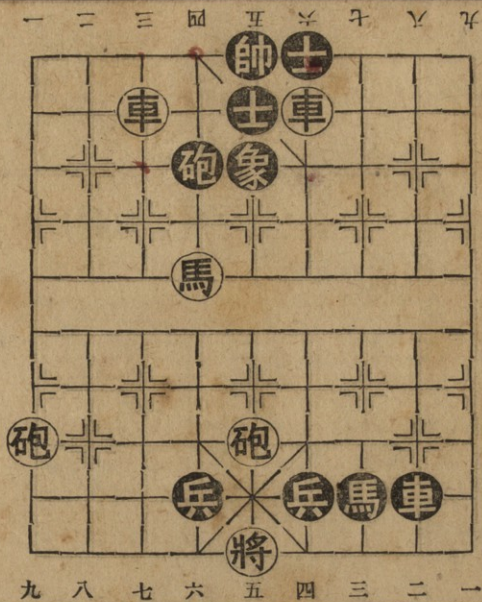 一 二 三 四 五 六 七 八 九
帥 士
車 士 車
砲 象
馬
砲 砲
兵 兵 馬 車
將
九 八 七 六 五 四 三 二 一